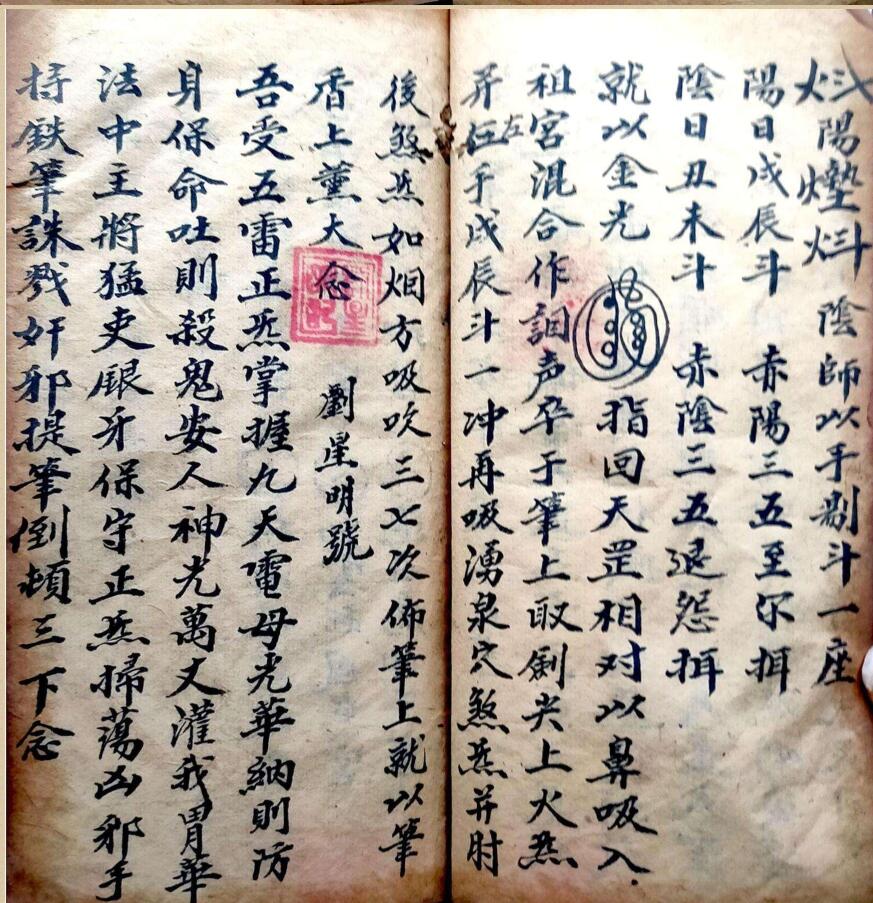 陽 陰師以手剔斗一座
陽日戊辰斗 赤陽三五至尔揖
陰日丑未斗 赤陰三五退怨揖
就以金光 指回天罡相对以鼻吸入
祖宮混合作 声卒于筆上取劍尖上火炁
并 左手戊辰斗一冲再吸湧泉穴煞炁并肘
後煞炁如烟方吸吹三七次佈筆上就以筆
香上薰大念
劉星明號
吾受五雷正炁掌握九天電母光華納則防
身保命吐則殺鬼安人神光萬丈灌我胃華
法中主將猛吏銀牙保守正炁掃蕩凶邪手
持鉄筆誅戮奸邪提筆倒頓三下念